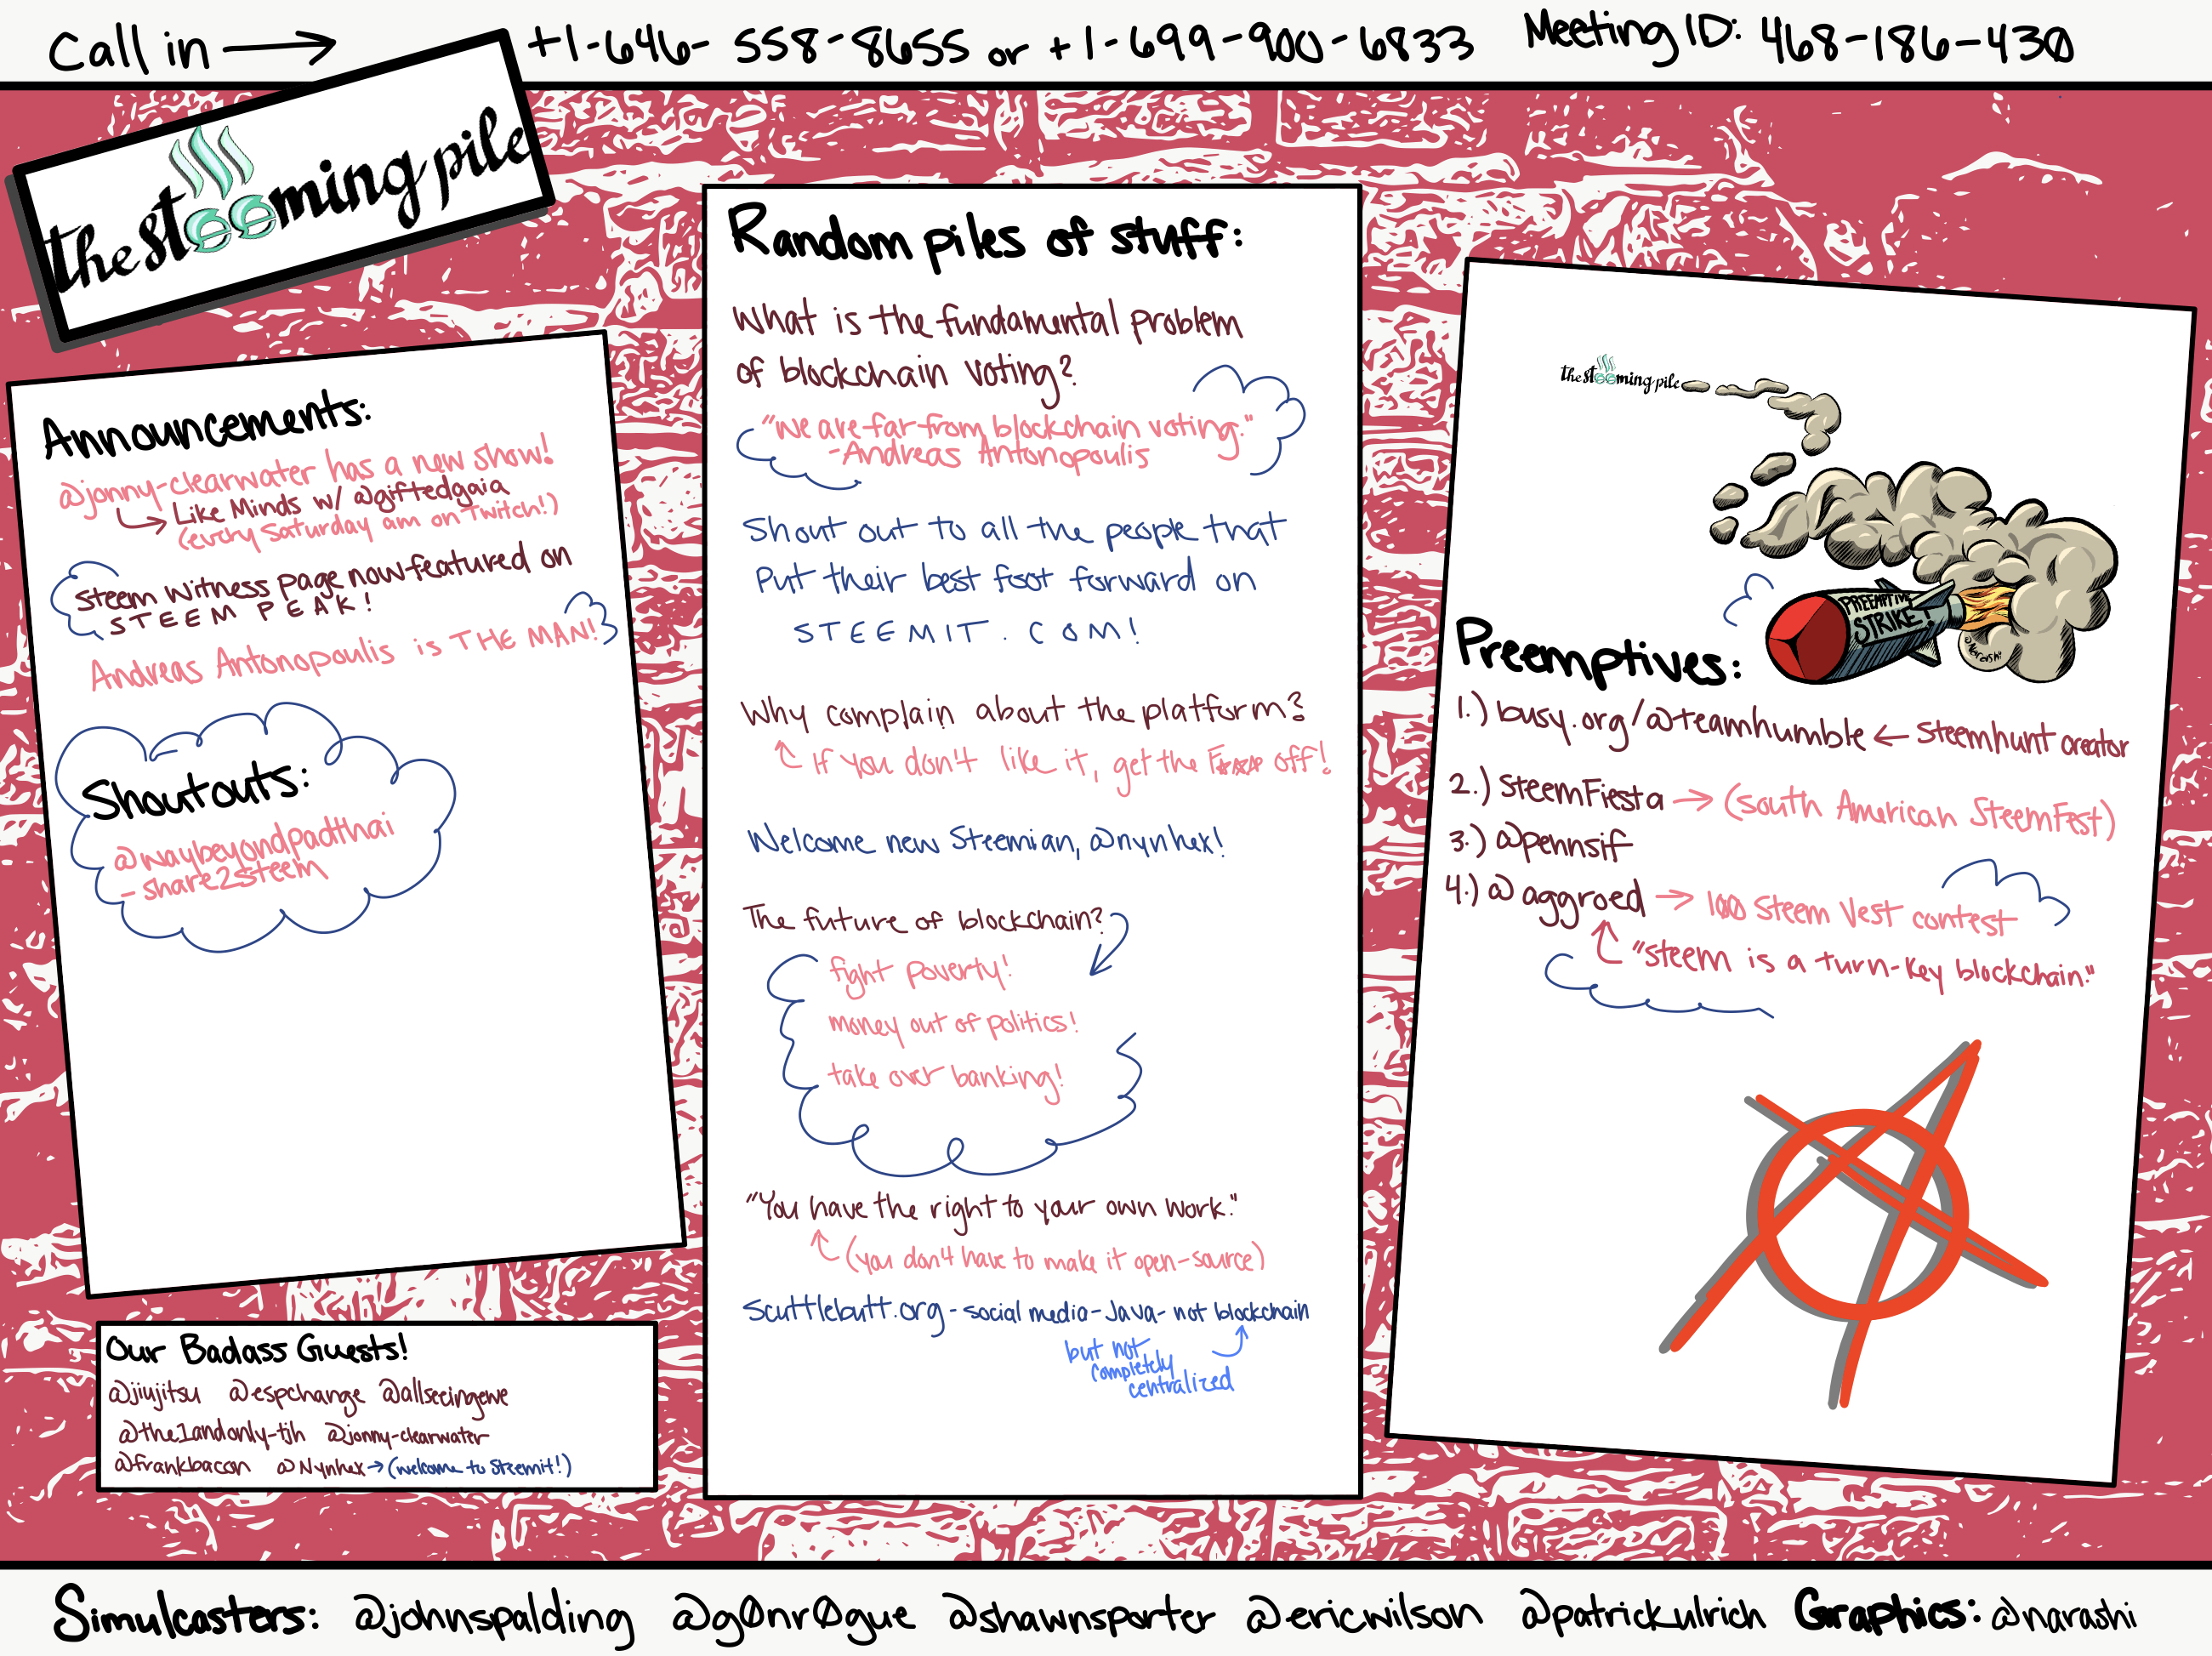 Call in → +1-646-558-8655 or +1-699-900-6833 Meeting ID: 468-186-430
the steeming pile
Announcements:
@jonny-clearwater has a new show!
Like Minds w/ @giftedgaia
(every Saturday am on Twitch!)
Steem Witness page now featured on
STEEM PEAK!
Andreas Antonopoulis is THE MAN!
Shoutouts:
@waybeyondpadthai
- share2steem
Our Badass Guests!
@jiujitsu @espchange @allseeingewe
@the1andonly-tjh @jonny-clearwater
@frankbacon @Nynhex → (welcome to Steemit!)
Random piles of stuff:
What is the fundamental problem
of blockchain voting?
"We are far from blockchain voting."
-Andreas Antonopoulis
Shout out to all the people that
put their best foot forward on
STEEMIT.COM!
Why complain about the platform?
If you don't like it, get the F*** off!
Welcome new Steemian, @nynhex!
The future of blockchain?
fight poverty!
money out of politics!
take over banking!
"You have the right to your own work."
(you don't have to make it open-source)
Scuttlebutt.org - social media - Java - not blockchain
but not
completely
centralized
the steeming pile
PREEMPTIVE
STRIKE!
@Narashi
Preemptives:
1.) busy.org/@teamhumble ← Steemhunt creator
2.) SteemFiesta → (South American SteemFest)
3.) @pennsif
4.) @aggroed → 100 Steem Vest contest
"steem is a turn-key blockchain."
Simulcasters: @johnspalding @g0nr0gue @shawnsporter @ericwilson @patrickulrich Graphics: @narashi